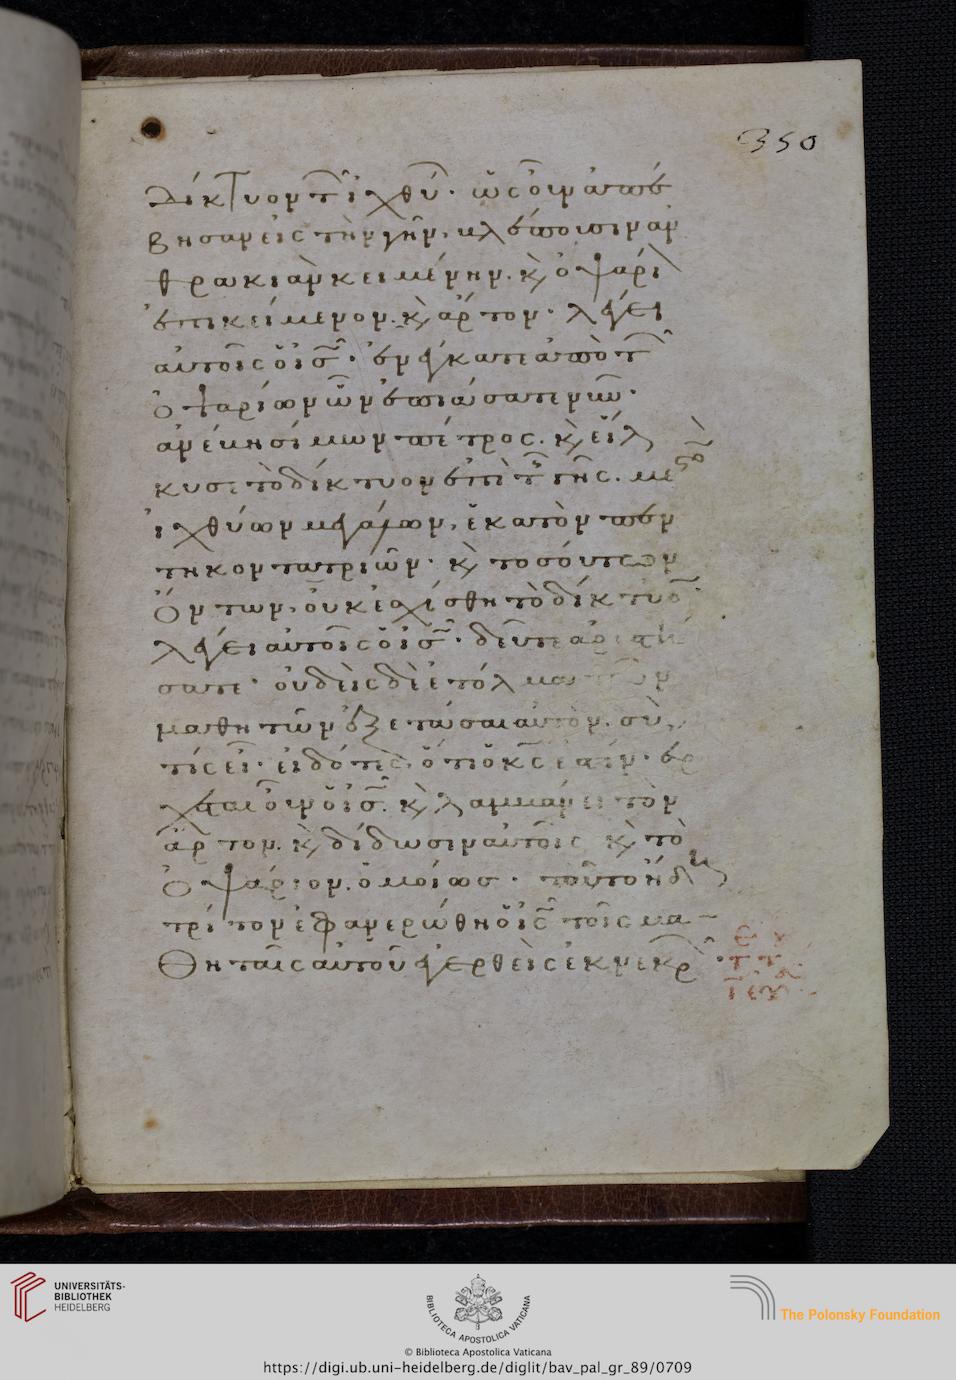 350
δίκτυον τ ἰχθύ· ὡς οὖν ἀπέ
βησαν εἰς τὴν γῆν, βλέπουσιν ἀν
θρακιὰν κειμένην. κ ὀψάρι
ἐπικείμενον. κ ἄρτον· λέγει
αὐτοῖς ὁ ις· ἐνέγκατε ἀπὸ τ
ὀψαρίων ὧν ἐπιάσατε νῦν·
ἀνέβη σίμων πέτρος. κ εἵλ
κυσε τὸ δίκτυον ἐπὶ τ γῆς. μεστὸ
ἰχθύων μεγάλων, ἑκατὸν πεν
τηκοντατριῶν· κ τοσούτων
ὄντων, οὐκ ἐσχίσθη τὸ δίκτυο
λέγει αὐτοῖς ὁ ις· δεῦτε ἀριστή
σατε· οὐδεὶς δὲ ἐτόλμα τῶν
μαθητῶν ἐξετάσαι αὐτὸν. σὺ
τίς εἶ· εἰδότες, ὅτι ὁ κς ἐστίν· ἔρ
χεται οὖν ὁ ις. κ λαμβάνει τὸν
ἄρτον. κ δίδωσιν αὐτοῖς κ τὸ
ὀψάριον. ὁμοίως· τοῦτο ἤδη
τρίτον ἐφανερώθη ὁ ις τοῖς μα
θηταῖς αὐτοῦ ἐγερθεὶς ἐκ νεκρ
UNIVERSITÄTS-
BIBLIOTHEK
HEIDELBERG
BIBLIOTECA APOSTOLICA VATICANA
The Polonsky Foundation
© Biblioteca Apostolica Vaticana
https://digi.ub.uni-heidelberg.de/diglit/bav_pal_gr_89/0709